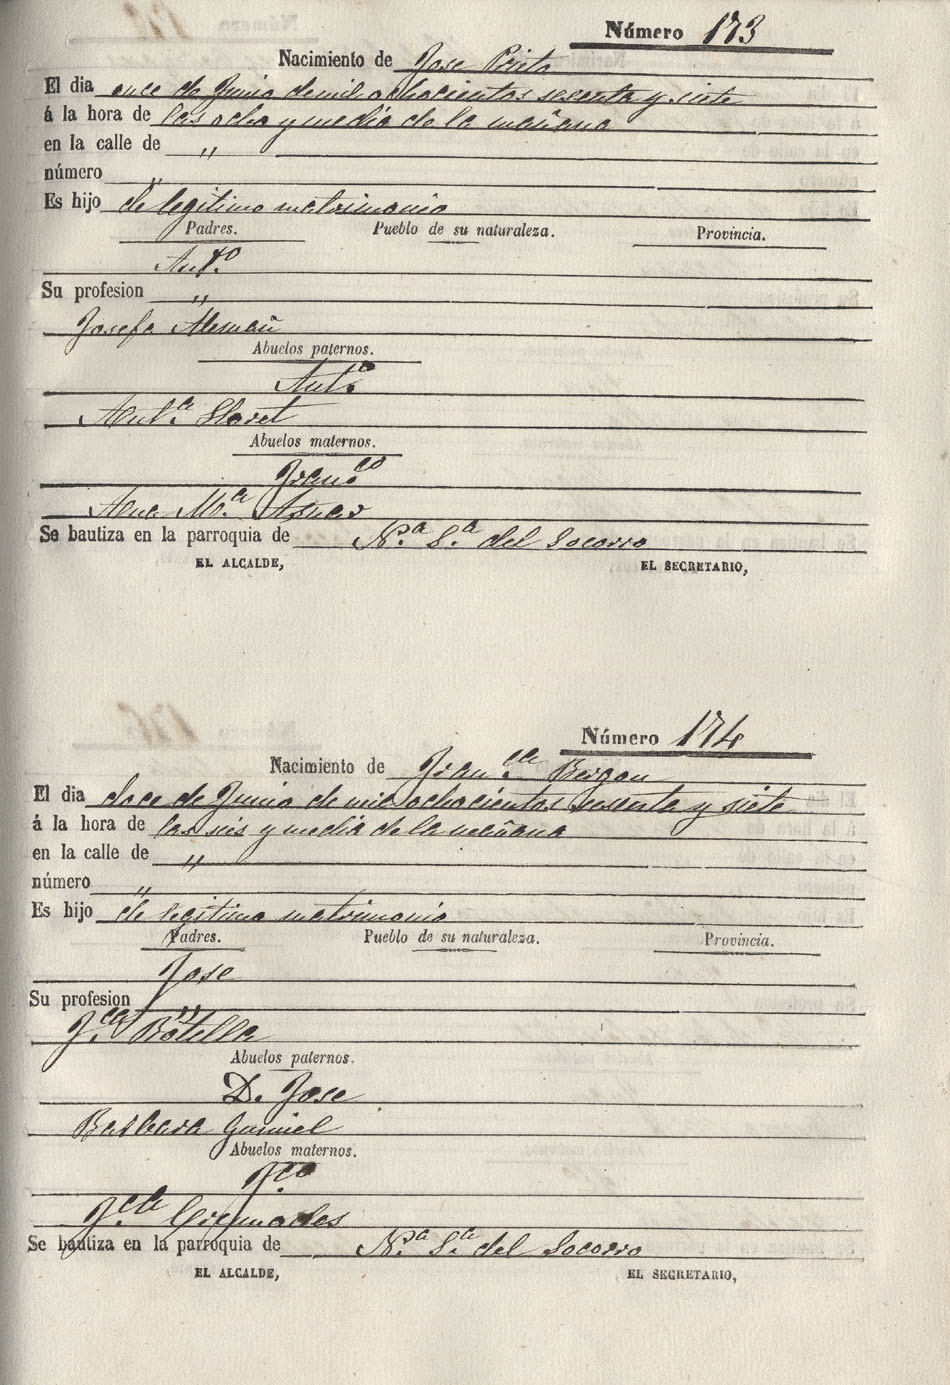 Número 173
Nacimiento de Jose Prieto
El dia once de Junio de mil ochocientos sesenta y siete
á la hora de las ocho y media de la mañana
en la calle de "
número "
Es hijo de legitimo matrimonio
Padres. Pueblo de su naturaleza. Provincia.
Antº
Su profesion "
Josefa Alemañ
Abuelos paternos.
Antº
Antª Lloret
Abuelos maternos.
Francº
Ana Mª Asnar
Se bautiza en la parroquia de Nª Sª del Socorro
EL ALCALDE, EL SECRETARIO,
Número 174
Nacimiento de Franᶜᵃ
El dia doce de Junio de mil ochocientos sesenta y siete
á la hora de las seis y media de la mañana
en la calle de "
número "
Es hijo de legitimo matrimonio
Padres. Pueblo de su naturaleza. Provincia.
Jose
Su profesion "
Fᶜᵃ Botella
Abuelos paternos.
D. Jose
Barbara
Abuelos maternos.
Fᶜᵒ
Fᶜᵃ
Se bautiza en la parroquia de Nª Sª del Socorro
EL ALCALDE, EL SECRETARIO,